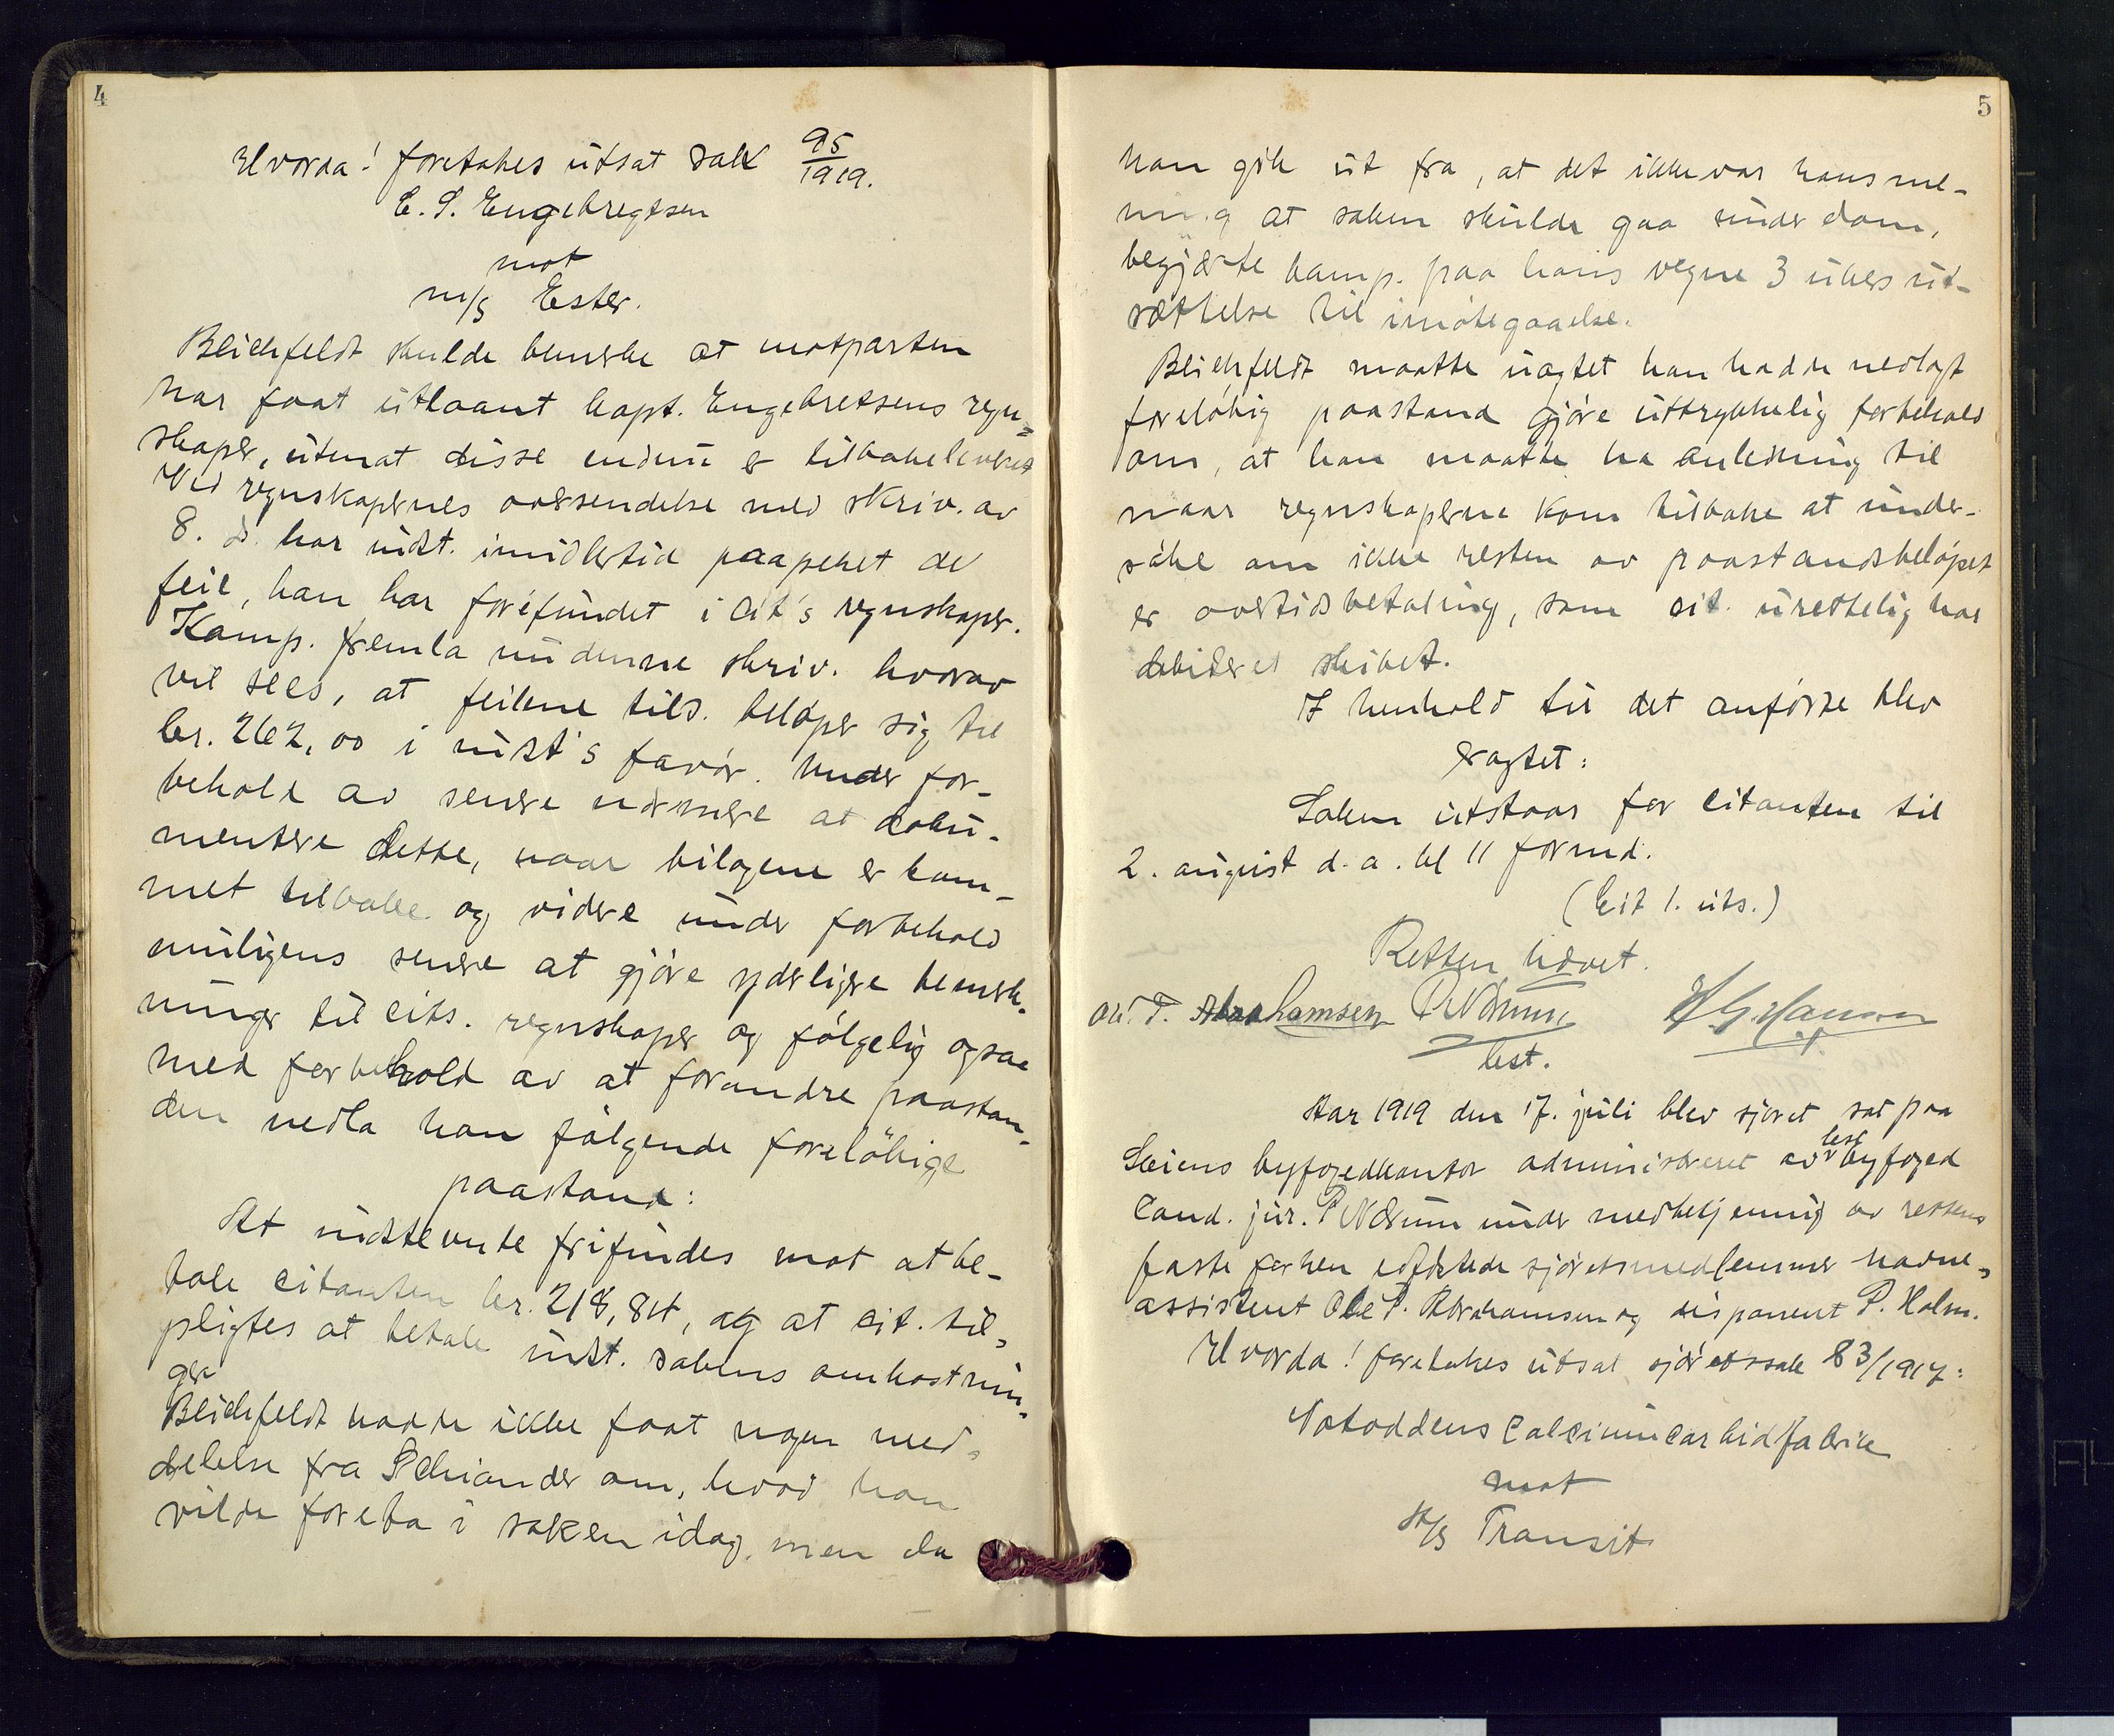 4
Hvorda! foretakes utsat sak 95/1919.
E. S. Engebregtsen
mot
m/s Ester.
Bleichfeldt skulde bemerke at motparten
har faat utlaant kapt. Engebretsens regn=
skaper, uten at disse endnu er tilbakeleveret
Ved regnskapernes oversendelse med skriv. av
8. ds. har indst. imidlertid paapeket de
feil, han har forefundet i cit's regnskaper.
Komp. fremla nu denne skriv. hvorav
vil sees, at feilene tils. beløper sig til
kr. 262,00 i indst's favør. Under for-
behold av senere nærmere at doku-
mentere dette, naar bilagene er kom-
met tilbake og videre under forbehold
muligens senere at gjøre yderligere bemerk-
ninger til cits. regnskaper og følgelig ogsaa
med forbehold av at forandre paastan-
den nedla han følgende foreløbige
paastand:
At indstevnte frifindes mot at be-
tale citanten kr. 218,84, og at cit. til-
pligtes at betale indst. sakens omkostnin-
ger
Bleichfeldt hadde ikke faat nogen med-
delelse fra Schiander om, hvad han
vilde foreta i saken idag, men da
5
han gik ut fra, at det ikke var hans me-
ning at saken skulde gaa under dom,
begjærte komp. paa hans vegne 3 ukers ut-
sættelse til imøtegaaelse.
Bleichfeldt maatte uagtet han hadde nedlagt
foreløbig paastand gjøre uttrykkelig forbehold
om, at han maatte ha anledning til
naar regnskaperne kom tilbake at under-
søke om ikke resten av paastandsbeløpet
er overtidsbetaling, som cit. urettelig har
debideret skibet.
I henhold til det anførte blev
eragtet:
Saken utstaar for citanten til
2. august d. a. kl 11 formd.
(Cit 1. uts.)
Retten hævet.
Ole P. Abrahamsen P Nærum H G Hansen
best.
Aar 1919 den 17. juli blev sjøret sat paa
Skiens byfogedkontor administreret av best byfoged
Cand. jur. P Nærum under medbetjening av rettens
faste forhen edfæstede sjøretsmedlemmer havne-
assistent Ole P. Abrahamsen og disponent P. Holm.
Hvorda! foretakes utsat sjøretssak 83/1917:
Notoddens Calciumcarbidfabrik
mot
S/S Transit